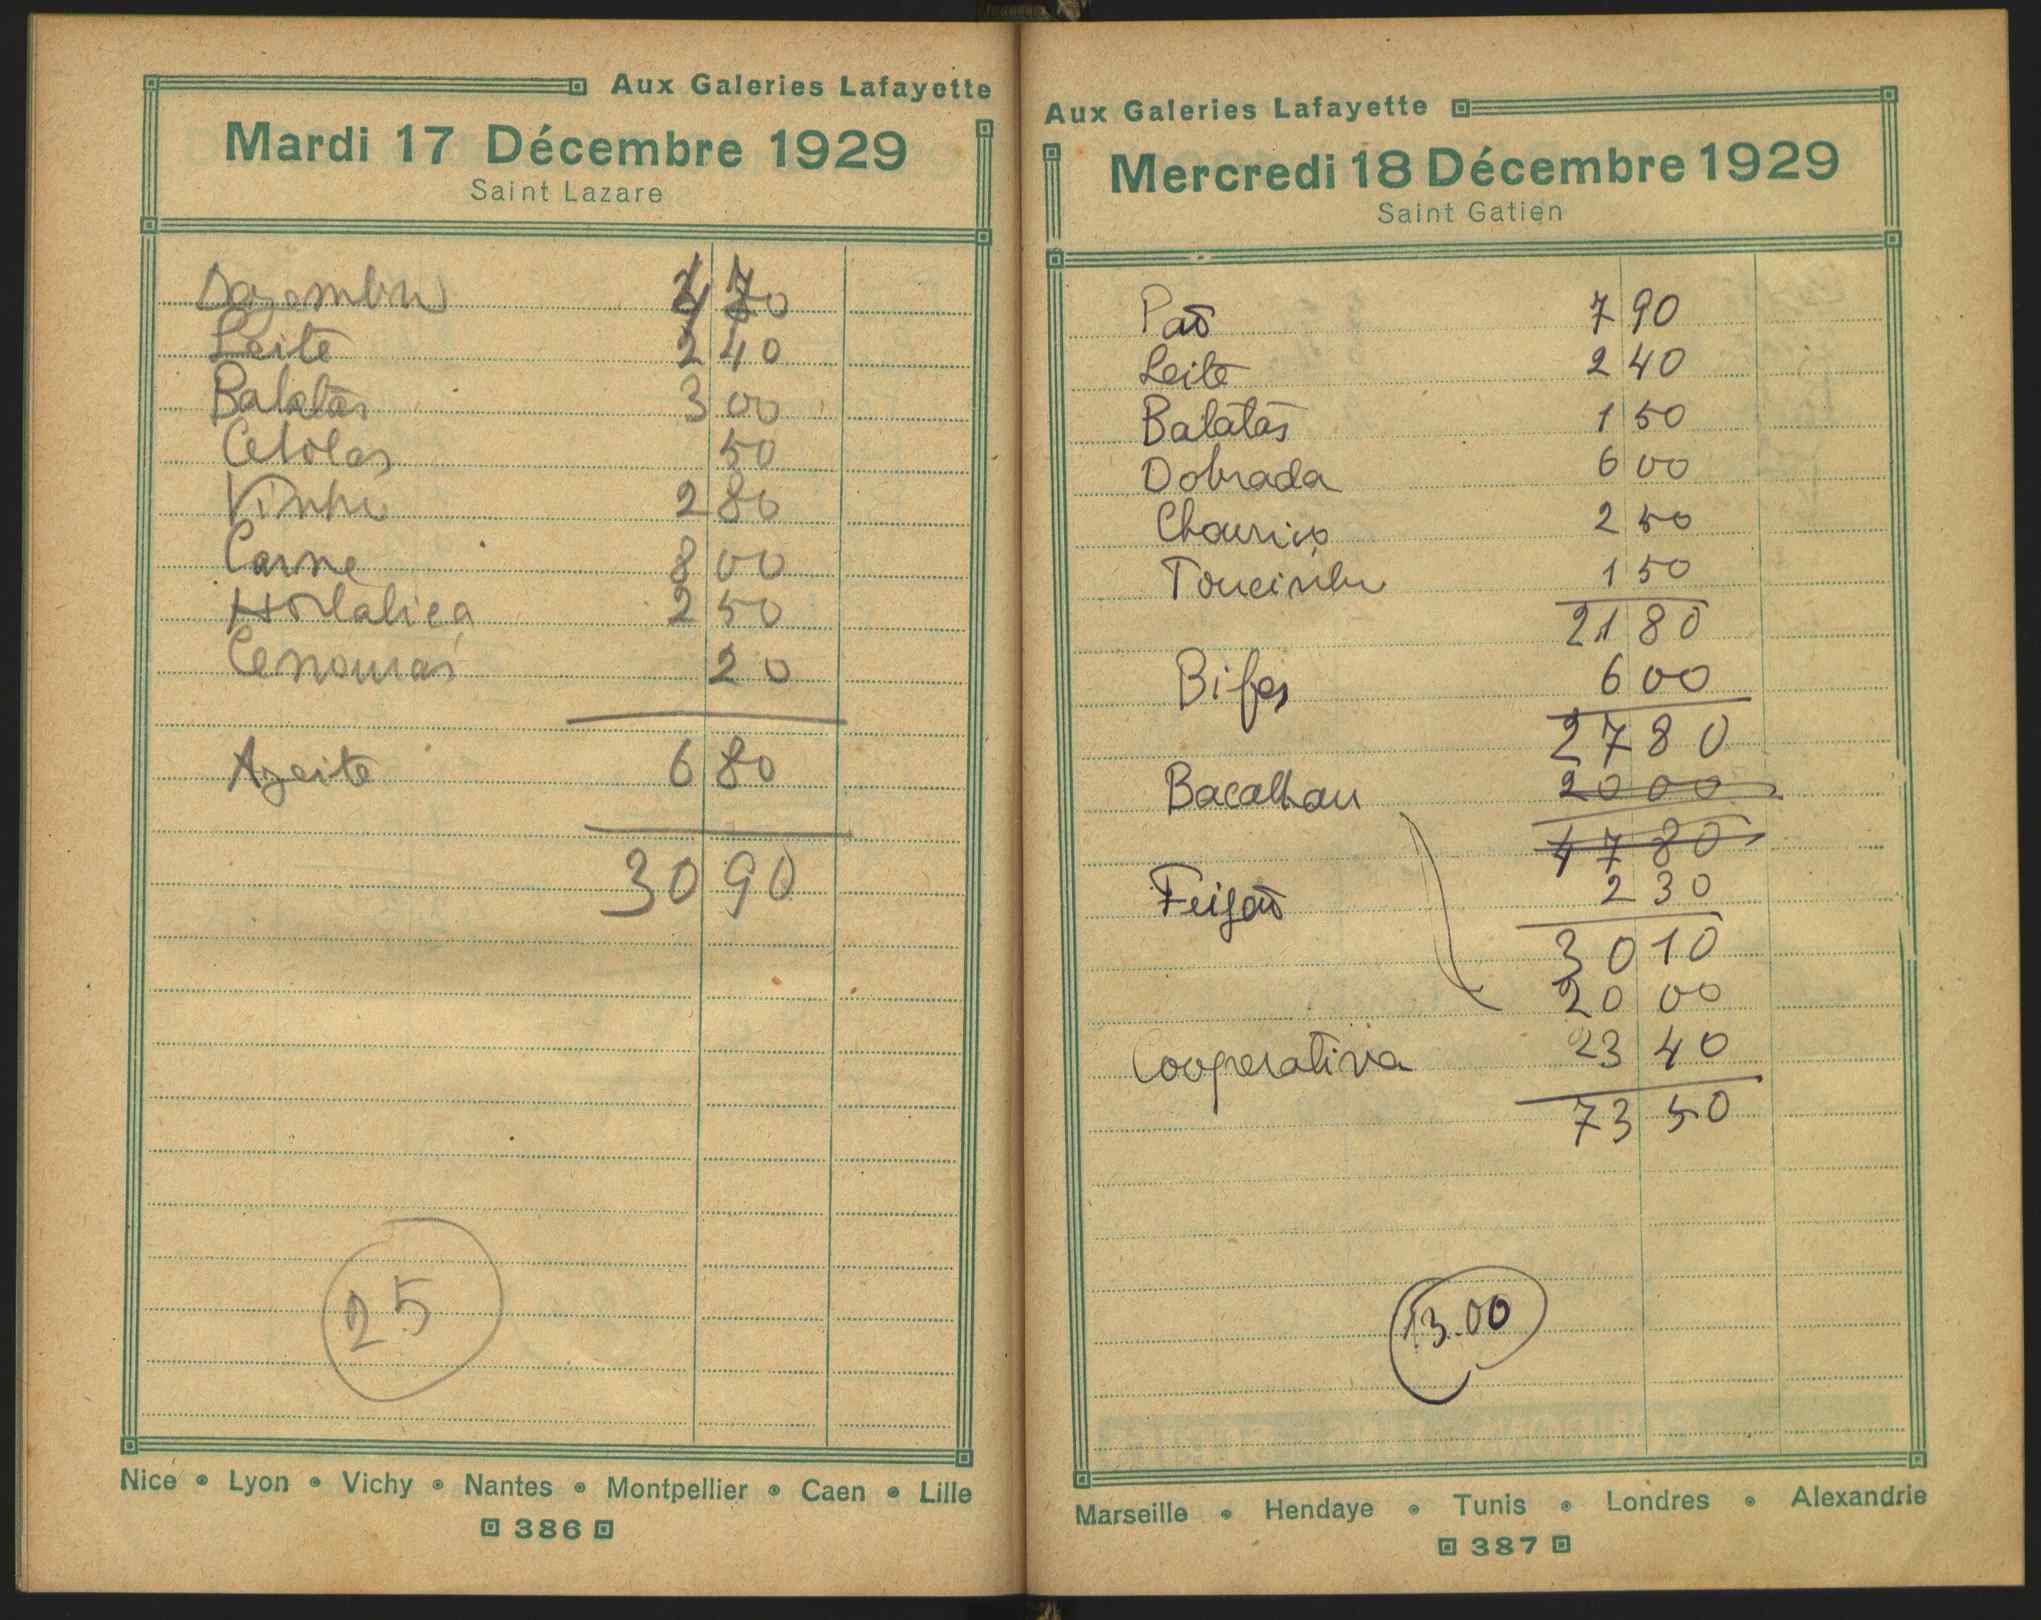 Aux Galeries Lafayette
Mardi 17 Décembre 1929
Saint Lazare
4 70
Leite 2 40
Batatas 3 00
Cebolas 50
Vinho 2 80
Carne 8 00
Hortaliça 2 50
Cenouras 20
Azeite 6 80
30 90
25
Nice • Lyon • Vichy • Nantes • Montpellier • Caen • Lille
386
Aux Galeries Lafayette
Mercredi 18 Décembre 1929
Saint Gatien
Pão 7 90
Leite 2 40
Batatas 1 50
Dobrada 6 00
Chouriço 2 50
Toucinho 1 50
21 80
Bifes 6 00
27 80
Bacalhau 20 00
47 80
Feijão 2 30
30 10
20 00
Cooperativa 23 40
73 50
13.00
Marseille • Hendaye • Tunis • Londres • Alexandrie
387